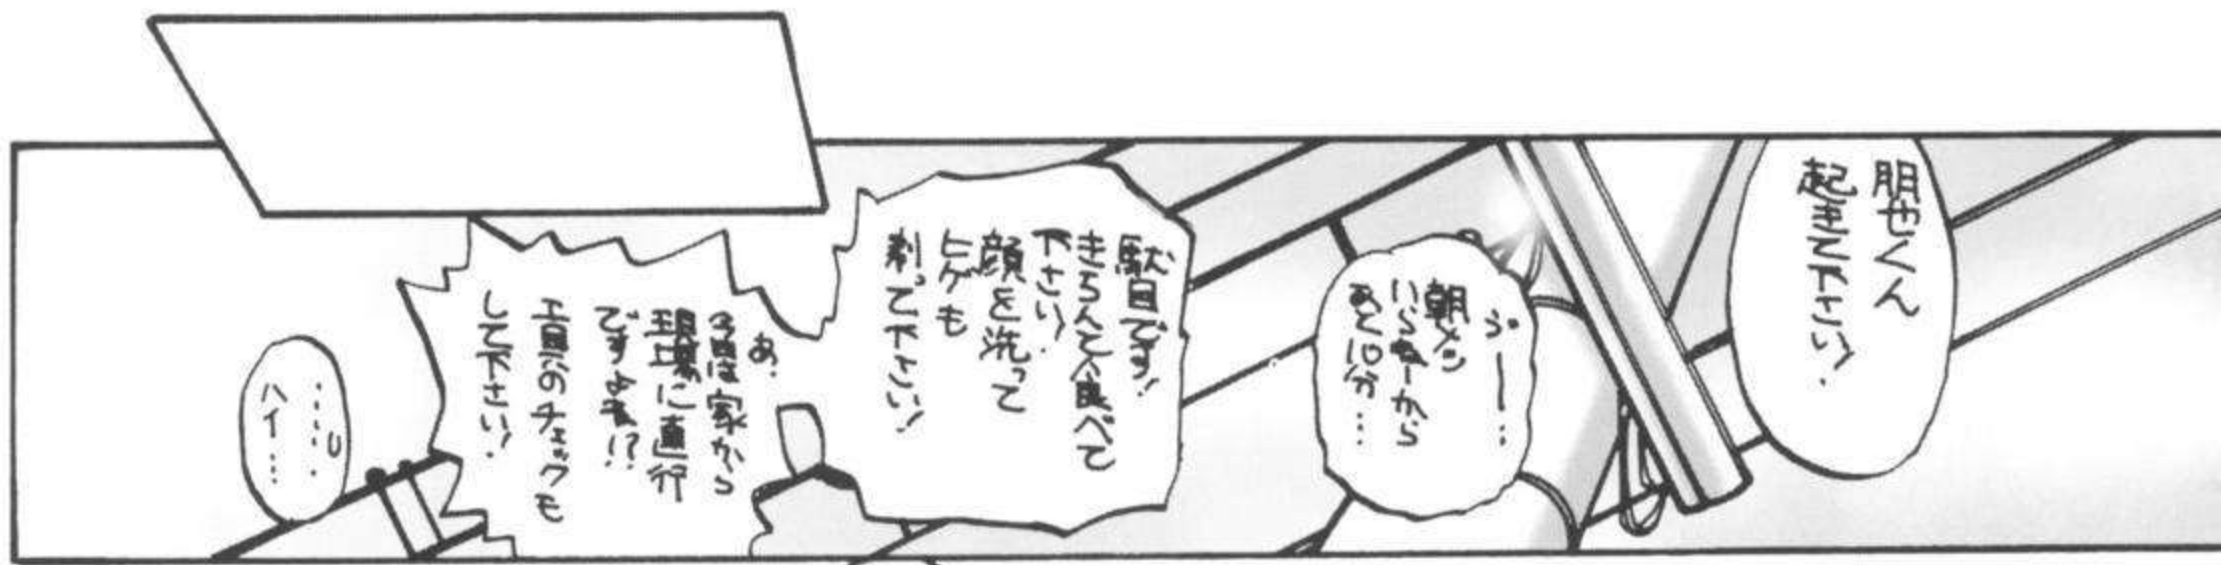 朋也くん
起きて下さい！
う゛ー…
朝メシ
いらねーから
あと10分…
駄目です！
きちんと食べて
下さい！
顔を洗って
ヒゲも
剃って下さい！
あ、
今日は家から
現場に直行
ですよね！？
工具のチェックも
して下さい！
……
ハイ…